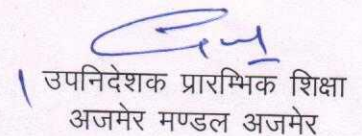 उपनिदेशक प्रारम्भिक शिक्षा
अजमेर मण्डल अजमेर